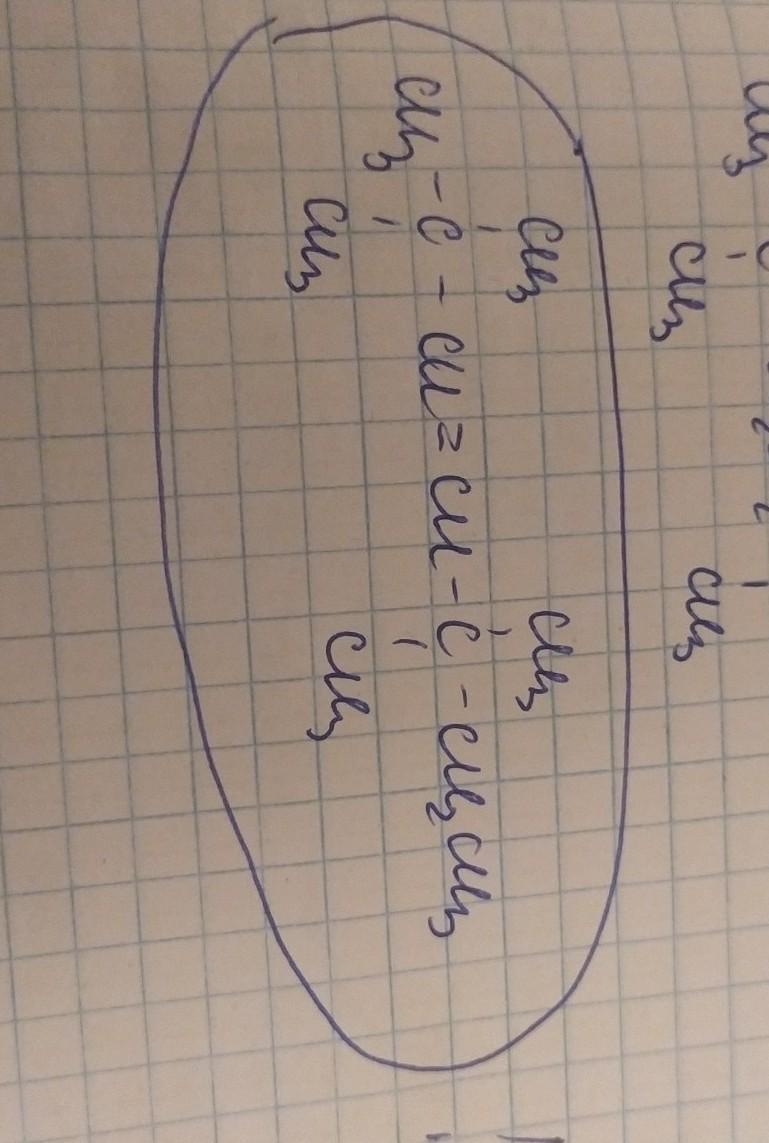 CH₃
CH₃ CH₃
CH₃ CH₃
CH₃-C-CH=CH-C-CH₂CH₃
CH₃ CH₃